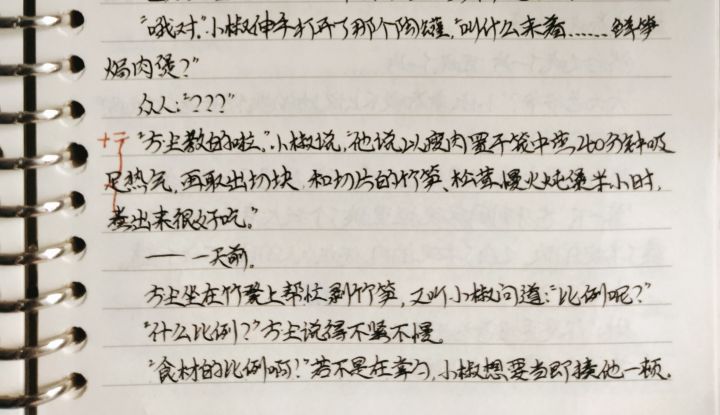 "哦对。"小椒伸手打开了那个陶罐,"叫什么来着……鲜笋
焗肉煲?"
众人:"???"
"方尘教的啦。"小椒说,"他说以瘦肉置于笼中蒸240分钟吸
足热气,再取出切块,和切片的竹笋、松茸慢火炖煲半小时,
煮出来很好吃。"
—— 一天前。
方尘坐在竹凳上帮忙剥竹笋,又听小椒问道:"比例呢?"
"什么比例?"方尘说得不紧不慢。
"食材的比例啊!"若不是在掌勺,小椒想要当即揍他一顿。